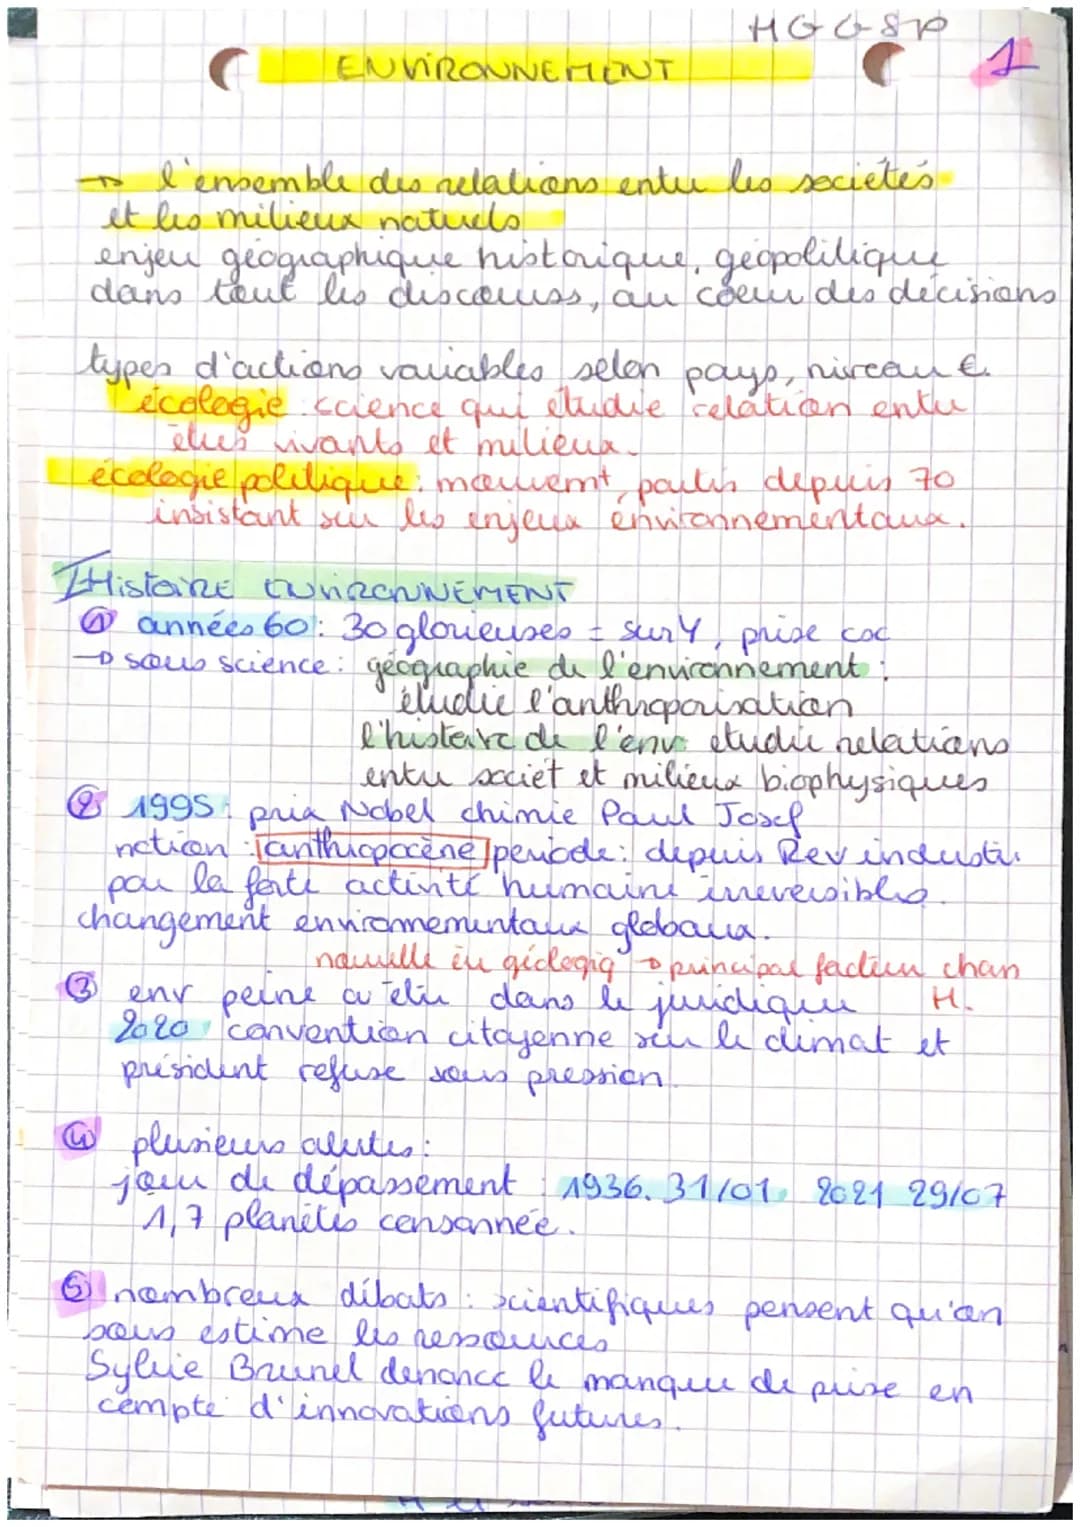 HGGSP
ENVIRONNEMENT
1
→ l'ensemble des relations entre les sociétés
et les milieux naturels
enjeu géographique historique, géopolitique
dans tout les discours, au coeur des décisions
types d'actions variables selon pays, niveau €.
écologie : science qui étudie relation entre
êtres vivants et milieux.
écologie politique : mouvemt, partis depuis 70
insistant sur les enjeux environnementaux.
I Histoire ENVIRONNEMENT
① années 60 : 30 glorieuses = sur Y, prise coc
→ sous science : géographie de l'environnement :
étudie l'anthroporisation
l'histoire de l'env étudie relations
entre sociét et milieux biophysiques
② 1995 : prix Nobel chimie Paul Josef
notion : anthropocène période : depuis Rev industri
par la forte activité humaine irreversibles
changement environnementaux globaux.
nouvelle ère géologiq → principal facteur chan
③ env peine à être dans le juridique H.
2020 convention citoyenne sur le climat et
président refuse sous pression.
④ plusieurs alertes :
jour de dépassement : 1936. 31/01. 2021 29/07
1,7 planètes consonnée.
⑤ nombreux débats : scientifiques pensent qu'on
sous estime les ressources
Sylvie Brunel dénonce le manque de prise en
compte d'innovations futures.